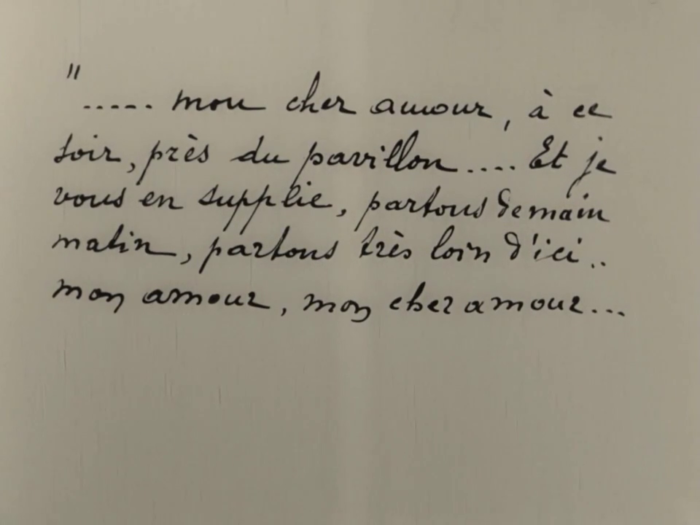 "..... mon cher amour, à ce
soir, près du pavillon.... Et je
vous en supplie, partons demain
matin, partons très loin d'ici..
mon amour, mon cher amour...